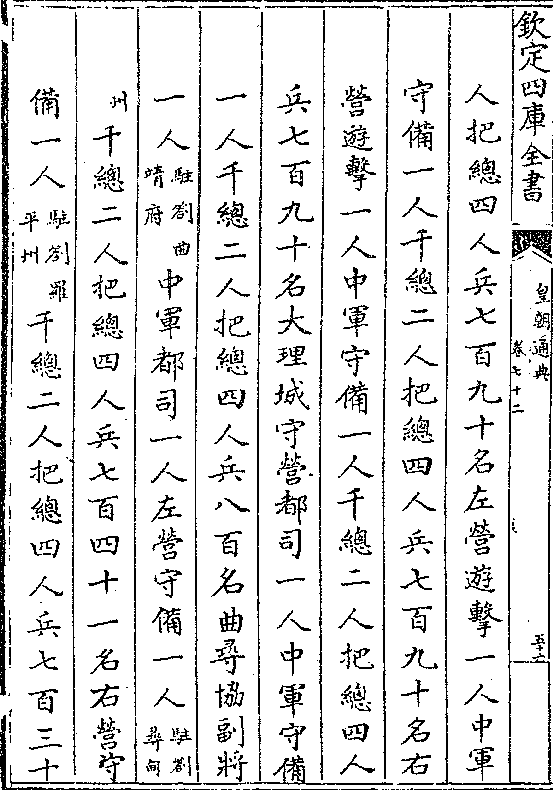 欽定四庫全書
皇朝通典
卷七十二
人把總四人兵七百九十名左營遊擊一人中軍
守備一人千總二人把總四人兵七百九十名右
營遊擊一人中軍守備一人千總二人把總四人
兵七百九十名大理城守營都司一人中軍守備
一人千總二人把總四人兵八百名曲尋協副將
一人駐劄曲靖府中軍都司一人左營守備一人駐劄尋甸
州千總二人把總四人兵七百四十一名右營守
備一人駐劄羅平州千總二人把總四人兵七百三十